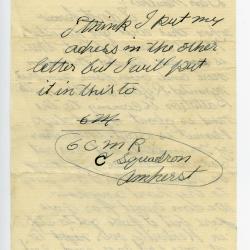 I think I put my
adress in the other
letter but I will put
it in this to
624
6 C M R
C Squadron
Amherst